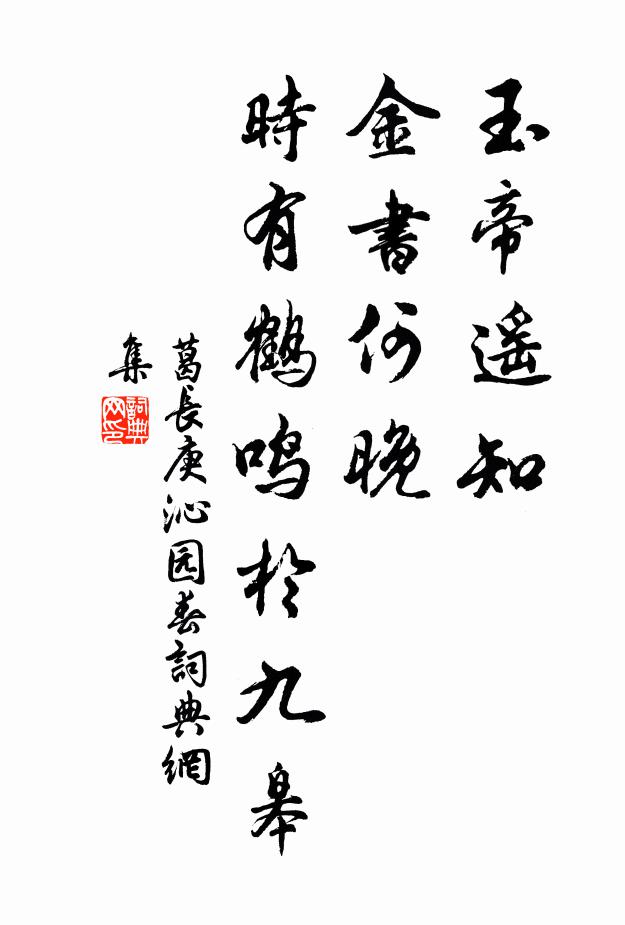 玉帝遥知
金書何晚
時有鶴鳴於九皋
葛長庚沁园春詞典網
集
詞典
网印